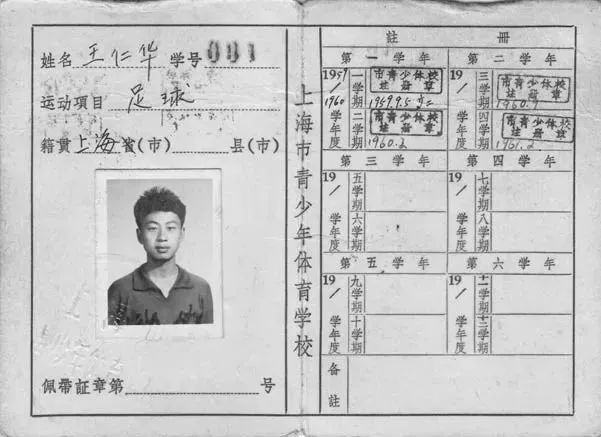 姓名 王仁华 学号 001
运动項目 足球
籍貫上海省(市) 县(市)
佩帶証章第 号
上海市青少年体育学校
註 冊
第一学年 第二学年
1959/1960学年度 19 / 学年度
一学期 市青少体校 註册章 1959.9.5
二学期 市青少体校 註册章 1960.2
三学期 市青少体校 註册章 1960.9
四学期 市青少体校 註册章 1961.2
第三学年 第四学年
19 / 学年度 19 / 学年度
五学期 七学期
六学期 八学期
第五学年 第六学年
19 / 学年度 19 / 学年度
九学期 十一学期
十学期 十二学期
备註